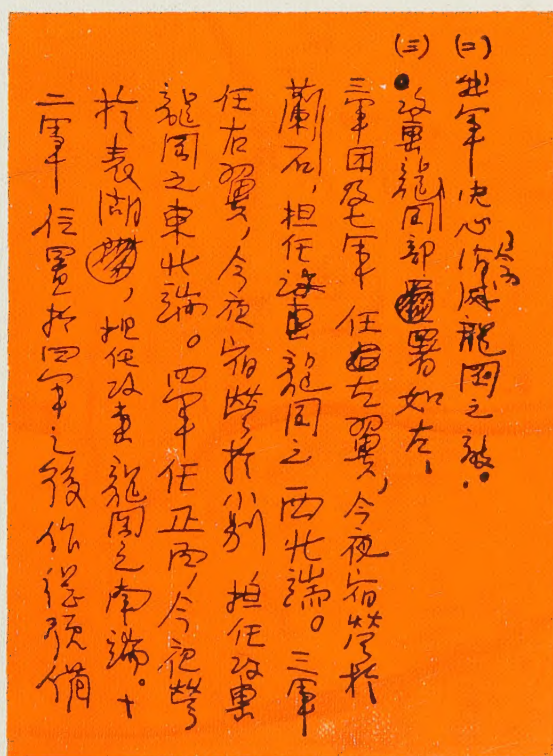 (二)我軍决心消滅龍岡之敵。
(三)攻擊龍岡部署如左:
三軍团及七軍任左翼,今夜宿营於
蘭石,担任攻擊龍岡之西北端。三軍
任右翼,今夜宿營於小别,担任攻擊
龍岡之東北端。四軍任正面,今夜營
於表湖,担任攻擊龍岡之南端。十
二軍位置於四軍之後作總預備